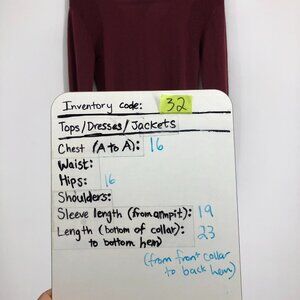 Inventory code: 32
Tops/Dresses/Jackets
Chest (A to A): 16
Waist:
Hips: 16
Shoulders:
Sleeve length (from armpit): 19
Length (bottom of collar): 23
to bottom hem)
(from front collar
to back hem)